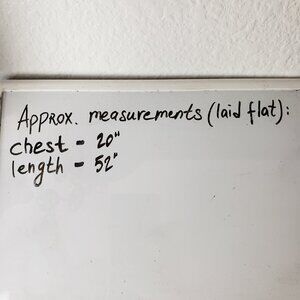 Approx. measurements (laid flat):
chest - 20"
length - 52"